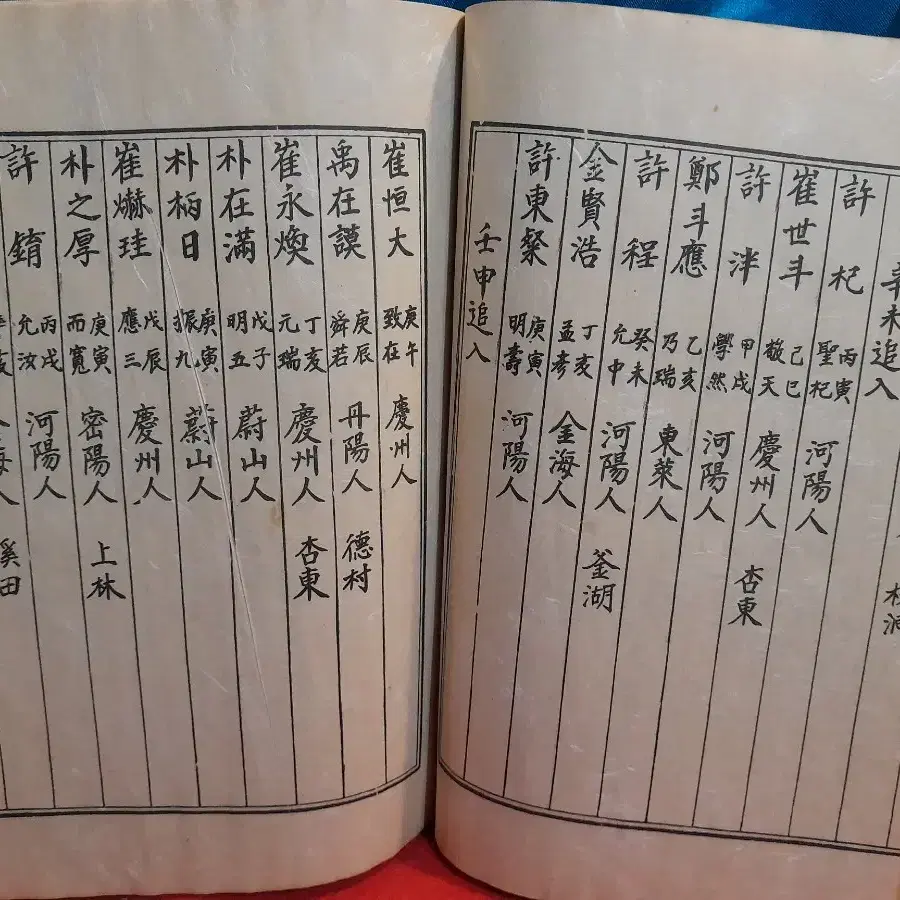 辛未追入
許杞 丙寅 聖杞 河陽人
崔世斗 己巳 敬天 慶州人 杏東
許泮 甲戌 學然 河陽人
鄭斗應 乙亥 乃瑞 東萊人
許程 癸未 允中 河陽人 釜湖
金賢浩 丁亥 孟彦 金海人
許東粲 庚寅 明壽 河陽人
壬申追入
崔恒大 庚午 致在 慶州人
禹在謨 庚辰 舜若 丹陽人 德村
崔永煥 丁亥 元瑞 慶州人 杏東
朴在滿 戊子 明五 蔚山人
朴柄日 庚寅 振九 蔚山人
崔爀珪 戊辰 應三 慶州人
朴之厚 庚寅 而寬 密陽人 上林
許 丙戌 允汝 河陽人
海人 溪田